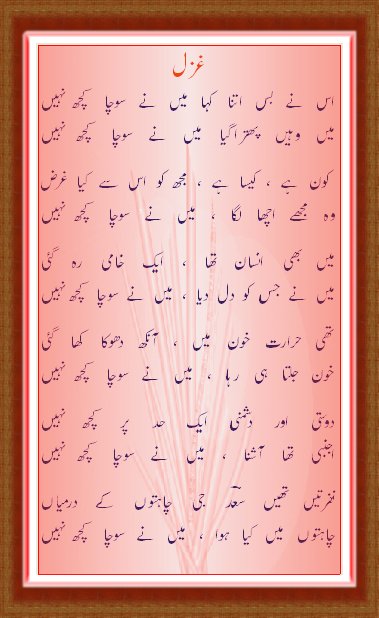 غزل
اس نے بس اتنا کہا میں نے سوچا کچھ نہیں
میں وہیں پتھرا گیا میں نے سوچا کچھ نہیں
کون ہے ، کیسا ہے ، مجھ کو اس سے کیا غرض
وہ مجھے اچھا لگا ، میں نے سوچا کچھ نہیں
میں بھی انسان تھا ، ایک خامی رہ گئی
میں نے جس کو دل دیا ، میں نے سوچا کچھ نہیں
تھی حرارت خون میں ، آنکھ دھوکا کھا گئی
خون جلتا ہی رہا ، میں نے سوچا کچھ نہیں
دوستی اور دشمنی ایک حد پر کچھ نہیں
اجنبی تھا آشنا ، میں نے سوچا کچھ نہیں
نفرتیں تھیں سعد جی چاہتوں کے درمیاں
چاہتوں میں کیا ہوا ، میں نے سوچا کچھ نہیں